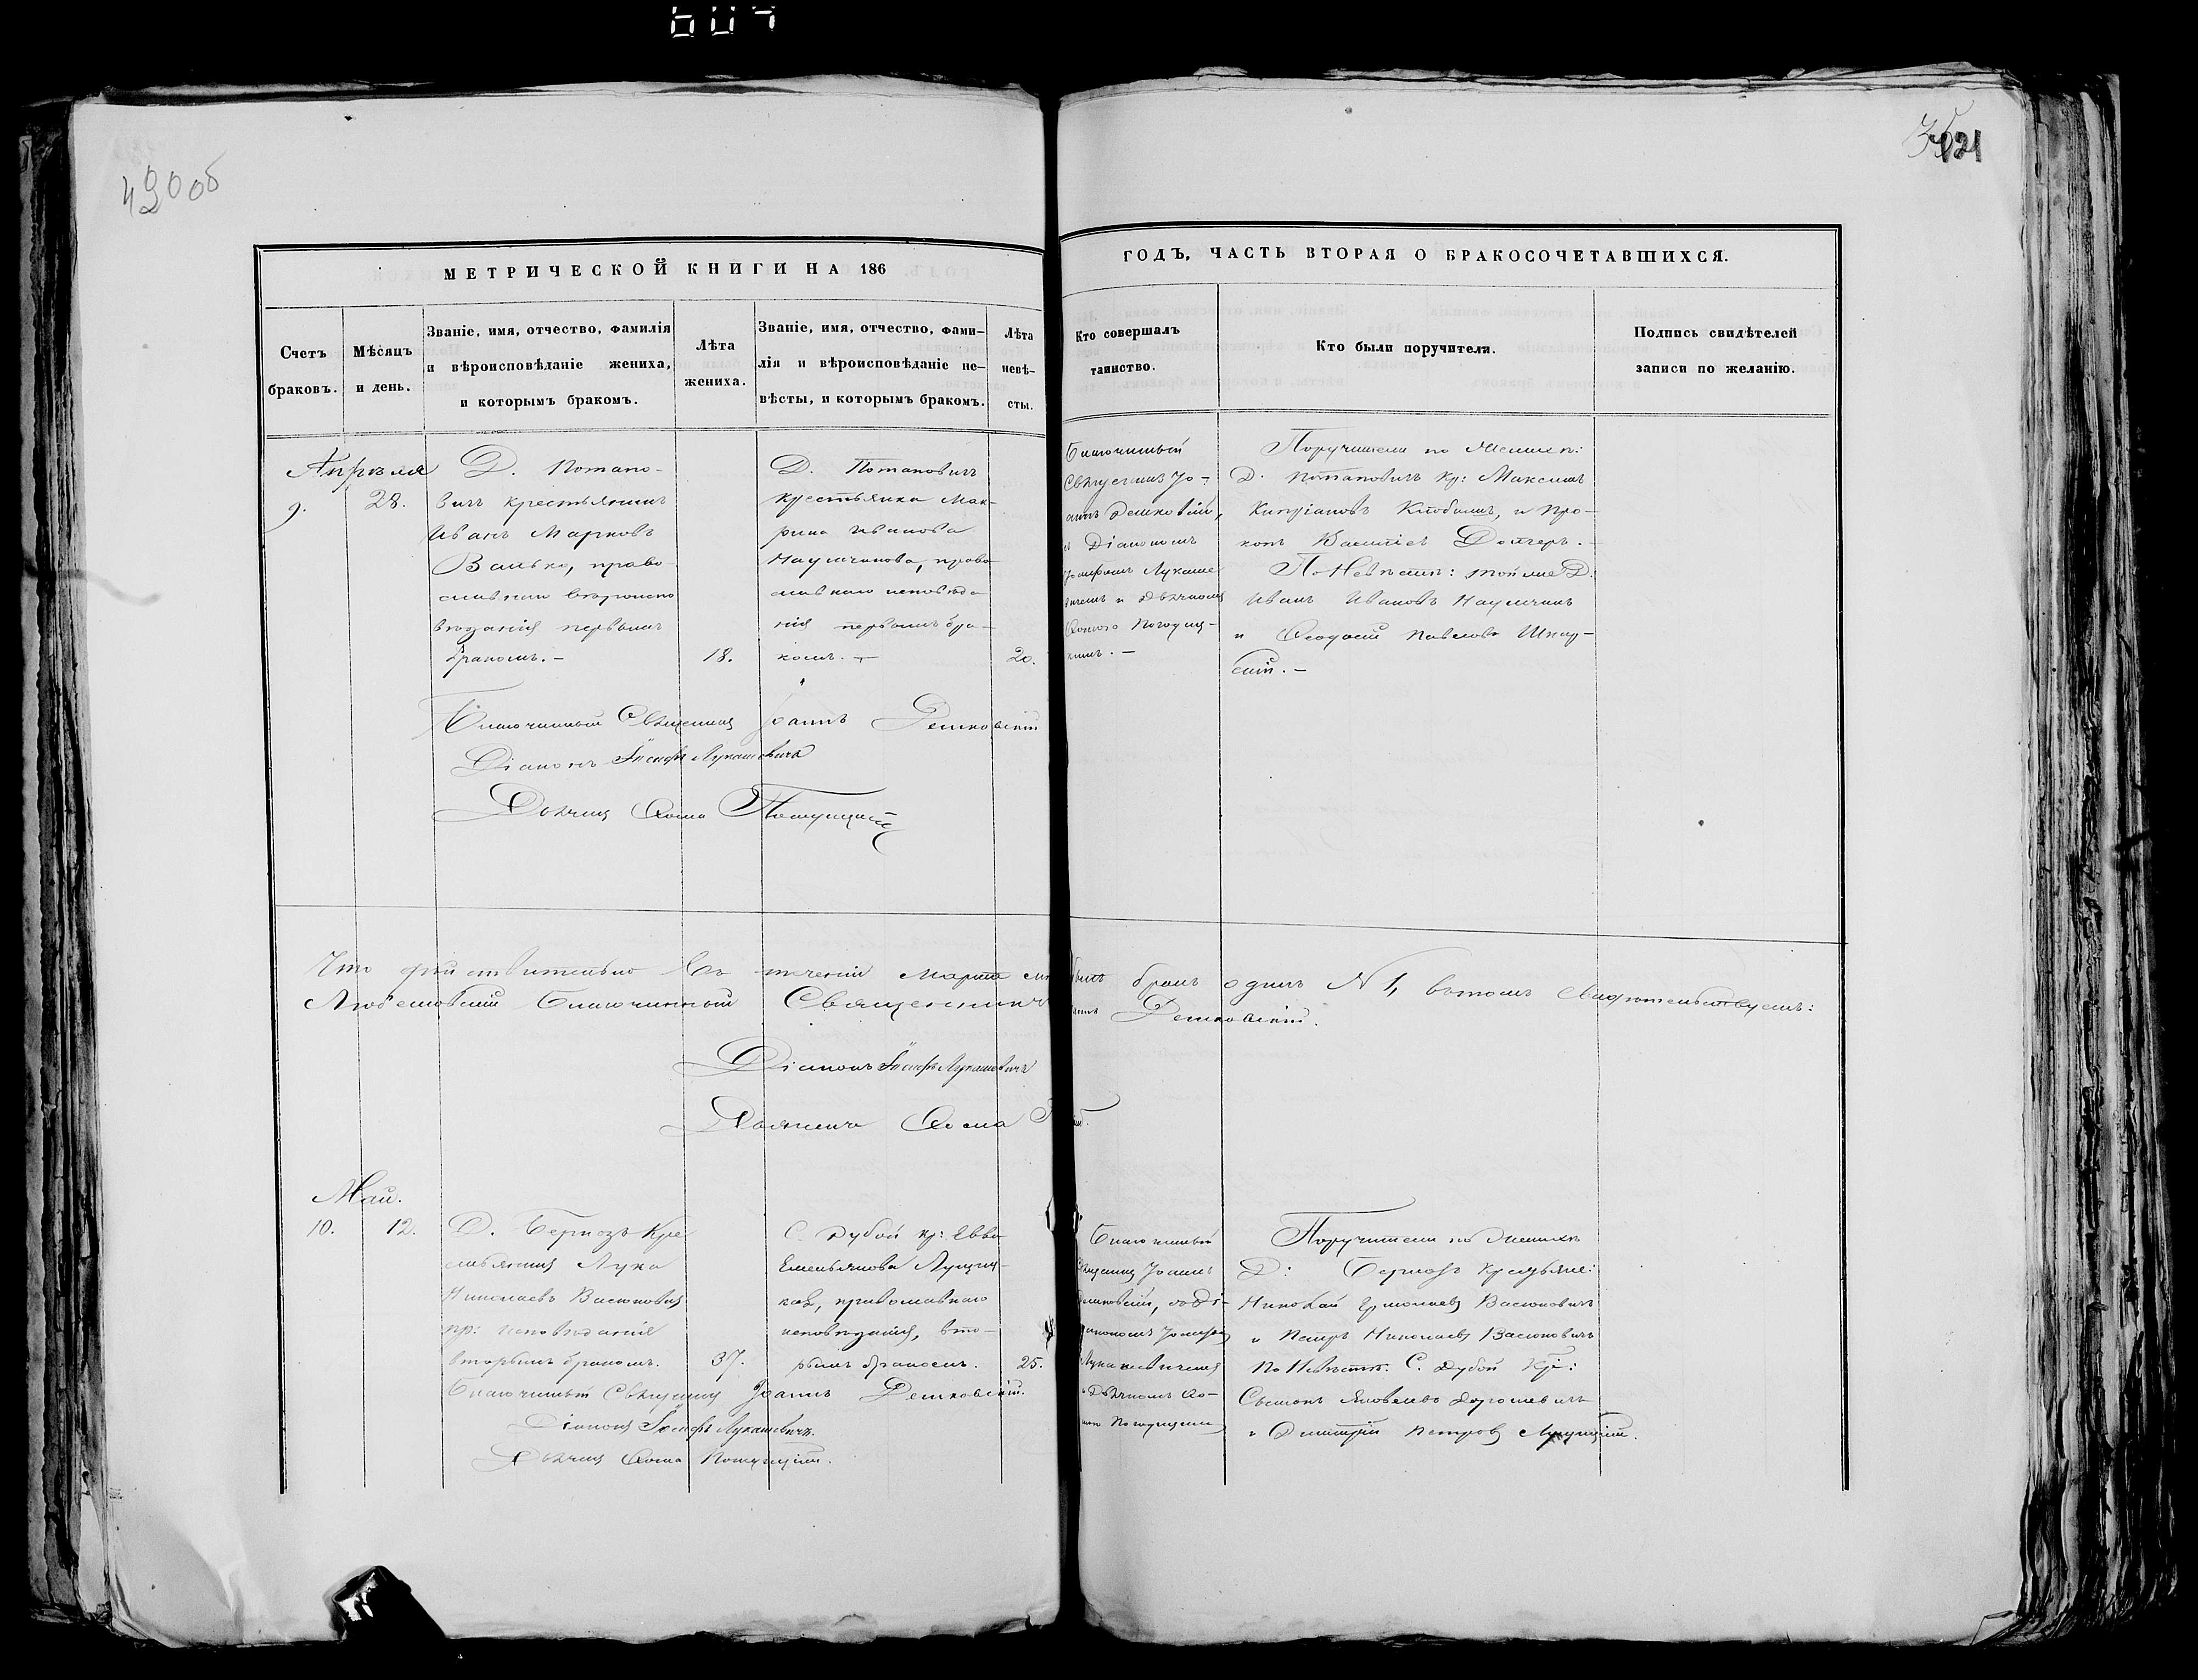 490об
121
МЕТРИЧЕСКОЙ КНИГИ НА 186
ГОДЪ, ЧАСТЬ ВТОРАЯ О БРАКОСОЧЕТАВШИХСЯ.
Счетъ браковъ.
Мѣсяцъ и день.
Званіе, имя, отчество, фамилія
и вѣроисповѣданіе жениха,
и которымъ бракомъ.
Лѣта
жениха.
Званіе, имя, отчество, фами-
лія и вѣроисповѣданіе не-
вѣсты, и которымъ бракомъ.
Лѣта
невѣ-
сты.
Кто совершалъ
таинство.
Кто были поручители.
Подпись свидѣтелей
записи по желанію.
Апрѣля
9.
28.
Д. Потапо-
вичъ крестьянинъ
Иванъ Марковъ
Валько, право-
славнаго вѣроиспо
вѣданія первымъ
бракомъ. —
18.
Д. Потаповичъ
крестьянка Мак-
рина Иванова
Наумчикова, право
славнаго исповѣда
нія первымъ бра-
комъ. —
20.
Благочинный
Священникъ Іо-
аннъ Демковскій,
Діакономъ
Іосифомъ Лукаше
вичемъ и Дьячкомъ
Ѳомою
Поручители по Женихѣ:
Д. Потаповичъ кр: Максимъ
и Про-
копъ Василіев
По Невѣстѣ: той же Д.
Иванъ Ивановъ Наумчикъ
и Ѳеодосій Павловъ
Благочинный Священникъ Іоаннъ Демковскій
Діаконъ Іосифъ Лукашевичъ
Дьячекъ Ѳома
Что дѣйствительно въ теченіи Марта
былъ бракъ одинъ N 1, вътомъ свидѣтельствуемъ:
Любешовскій Благочинный Священникъ
Демковскій.
Діаконъ Іосифъ Лукашевичъ
Дьячекъ Ѳома
Май.
10.
12.
Д. Березъ Кре
стьянинъ Лука
Николаевъ Васюковичъ
пр: исповѣданія
вторымъ бракомъ.
37.
С. Дубой кр: Евва
Емельянова
православнаго
исповѣданія, вто-
рымъ бракомъ.
25.
Благочинный
Священникъ Іоаннъ
Іосифомъ
Лукашевичемъ
и Дьячкомъ Ѳо-
Поручители по Женихѣ
Д: Березъ Крестьяне:
Николай Ермолаевъ Васюковичъ
и Петръ Николаевъ Васюковичъ
По Невѣстѣ: С. Дубой Кр:
Сымонъ Яковлевъ Дорошевичъ
и Димитрій Петровъ
Благочинный Священникъ Іоаннъ Демковскій.
Діаконъ Іосифъ Лукашевичъ.
Дьячекъ Ѳома